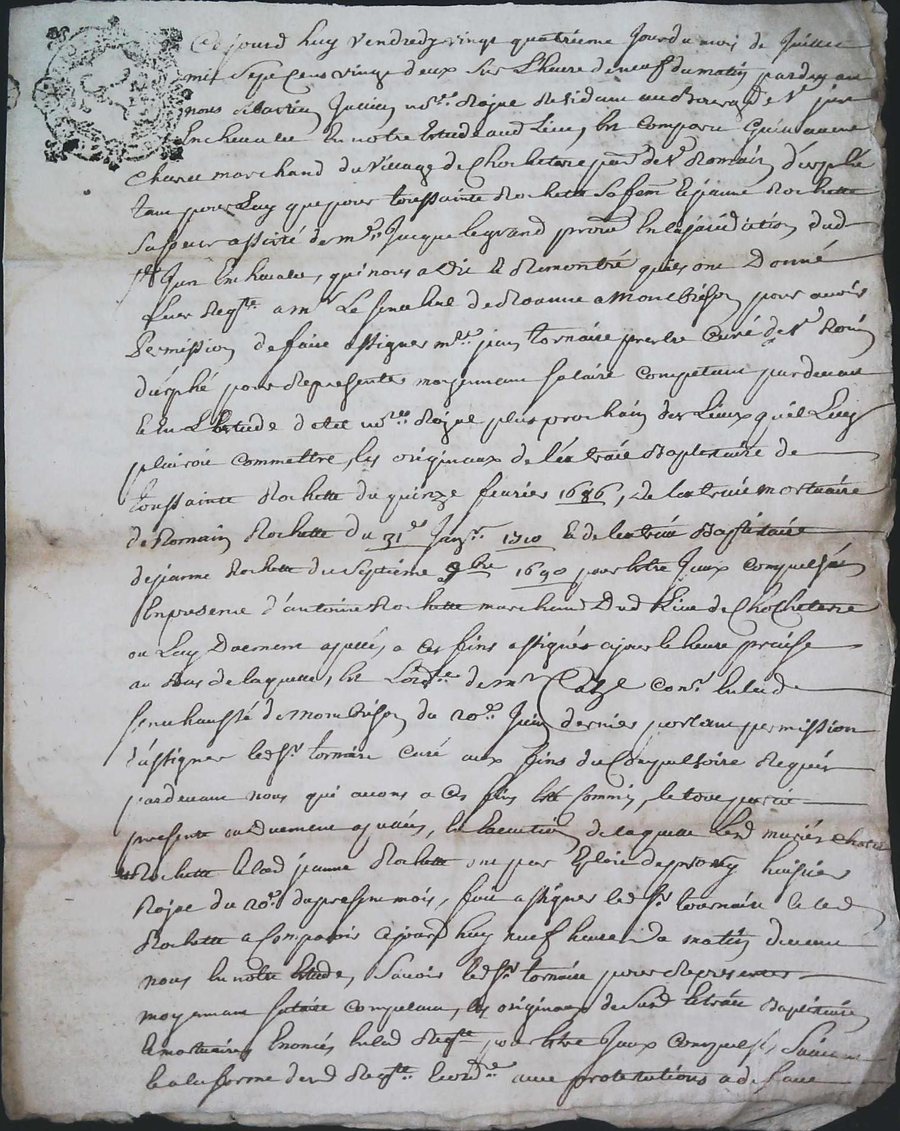 Cejourd'huy vendredy vingt quatrième jour du mois de Juillet
mil sept cens vingt deux sur l'heure de neuf du matin pardevant
nous notre Royal Residant au de St just
En chevalet En notre Estude aud Lieu, Est comparu
marchand du village de Chocheterre parre de St Romain d'urphé
tant pour Luy que pour toussainte Rochette sa fem et jeanne Rochette
sa soeur assisté de me Jacque legrand procur En la jurisdiction dud
St Just En chevalet, qui nous a dit et Remontré qu'ils ont Donné
Leur Reqte a Mr Le senechal de Roanne a Montbrison pour avoir
Permission de faire assigner mre jean tornaire prestre Curé de St Romain
d'urphé pour Representer moyennant salaire competant pardevant
et En L'Estude d'un notre Royal plus prochain des Lieux qu'il Luy
plairoit commettre, les originaux de l'extrait Baptistaire de
toussainte Rochette du quinze fevrier 1686, de l'extrait mortuaire
de Romain Rochette du 31e Janr 1710 et de l'extrait Baptistaire
de jeanne Rochette du septième 9bre 1690 pour Estre Iceux compulsés
En presence d'antoine Rochette marchand Dud Lieu de Chocheterre
ou Luy Duement apellé, a ces fins assignés a jour et heure precise
au Bas de laquelle, Est L'ordce de Mr Consr En lad
senechaussée de Montbrison du 20e Juin dernier portant permission
d'assigner led Sr tornaire curé aux fins du Compulsoire Requis
pardevant nous qui avons a ces fins Esté Commis, le tout partie
presente ou Duement apellées, En Execution de laquelle Lesd mariés
Rochette et lad jeanne Rochette ont par Exploit de huissier
Royal du 20e du present mois, fait assigner led Sr tournaire et led
Rochette a Comparoir cejourd'huy neuf heures du matin devant
nous En notre Estude, Savoir led Sr tornaire pour Representer
moyennant salaire competant, les originaux desd Extraits Baptistaire
et mortuaires Enoncés En lad Reqte pour Estre Iceux Compulsés suivant
et a la forme desd Reqte et ordce avec protestations a defaut